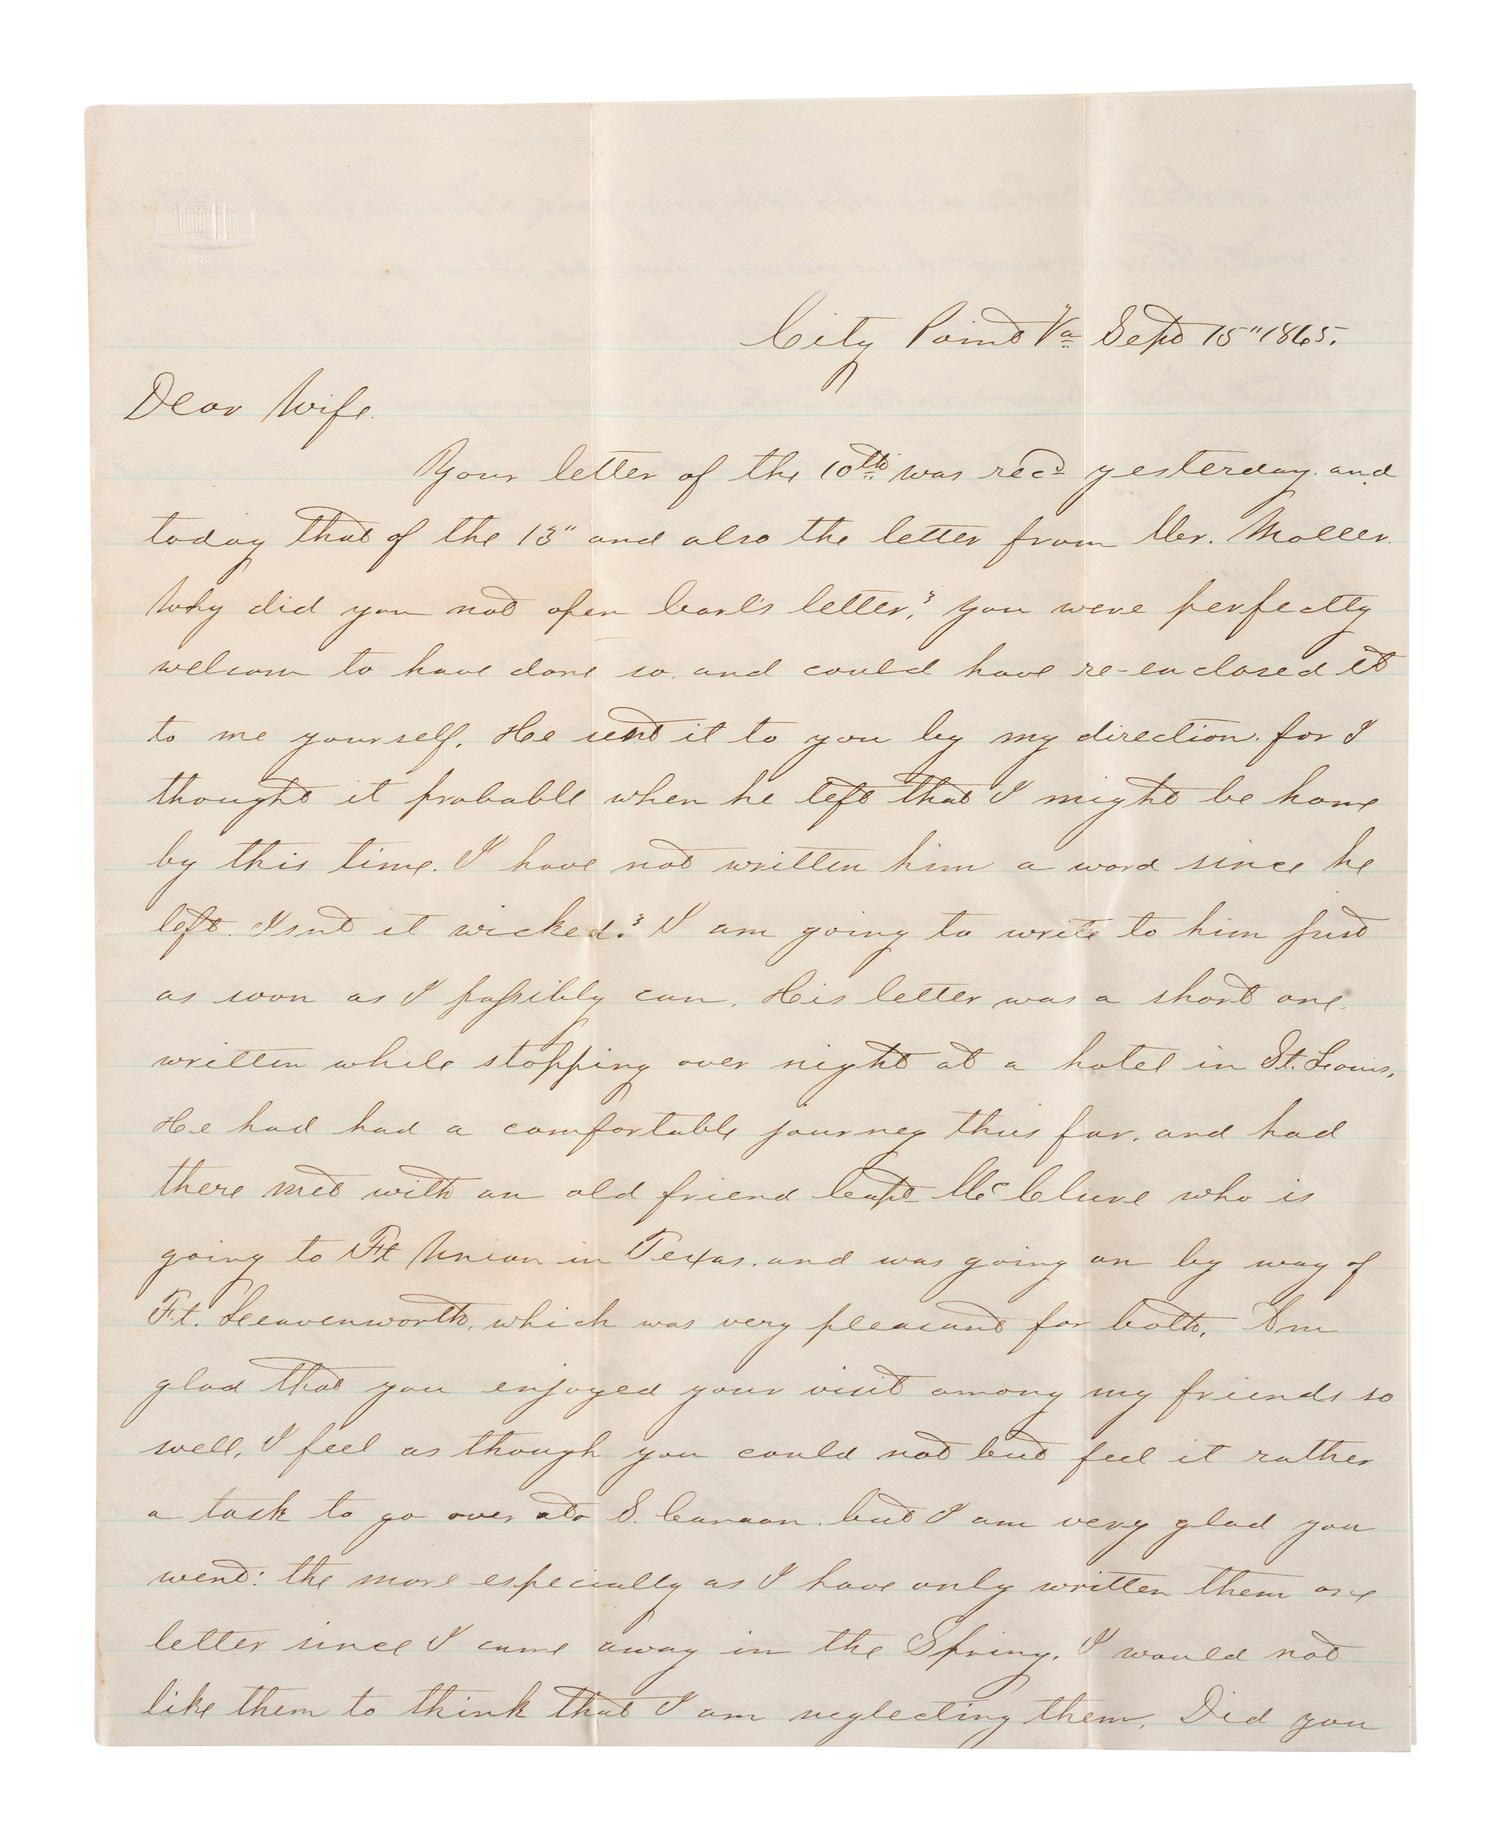 City Point Va Sept 15" 1865.
Dear Wife.
Your letter of the 10th was recd yesterday. and
today that of the 13" and also the letter from Mr. Moller.
Why did you not open Carl's letter,? you were perfectly
welcom to have done so. and could have re-enclosed it
to me yourself. He sent it to you by my direction. for I
thought it probable when he left that I might be home
by this time. I have not written him a word since he
left. Isnt it wicked.? I am going to write to him just
as soon as I possibly can. His letter was a short one.
written while stopping over night at a hotel in St. Louis.
He had had a comfortable journey thus far. and had
there met with an old friend Capt McClure who is
going to Ft Union in Texas. and was going on by way of
Ft. Leavenworth, which was very pleasant for both. Am
glad that you enjoyed your visit among my friends so
well, I feel as though you could not but feel it rather
a task to go over to S. Canaan. but I am very glad you
went: the more especially as I have only written them one
letter since I came away in the Spring. I would not
like them to think that I am neglecting them. Did you